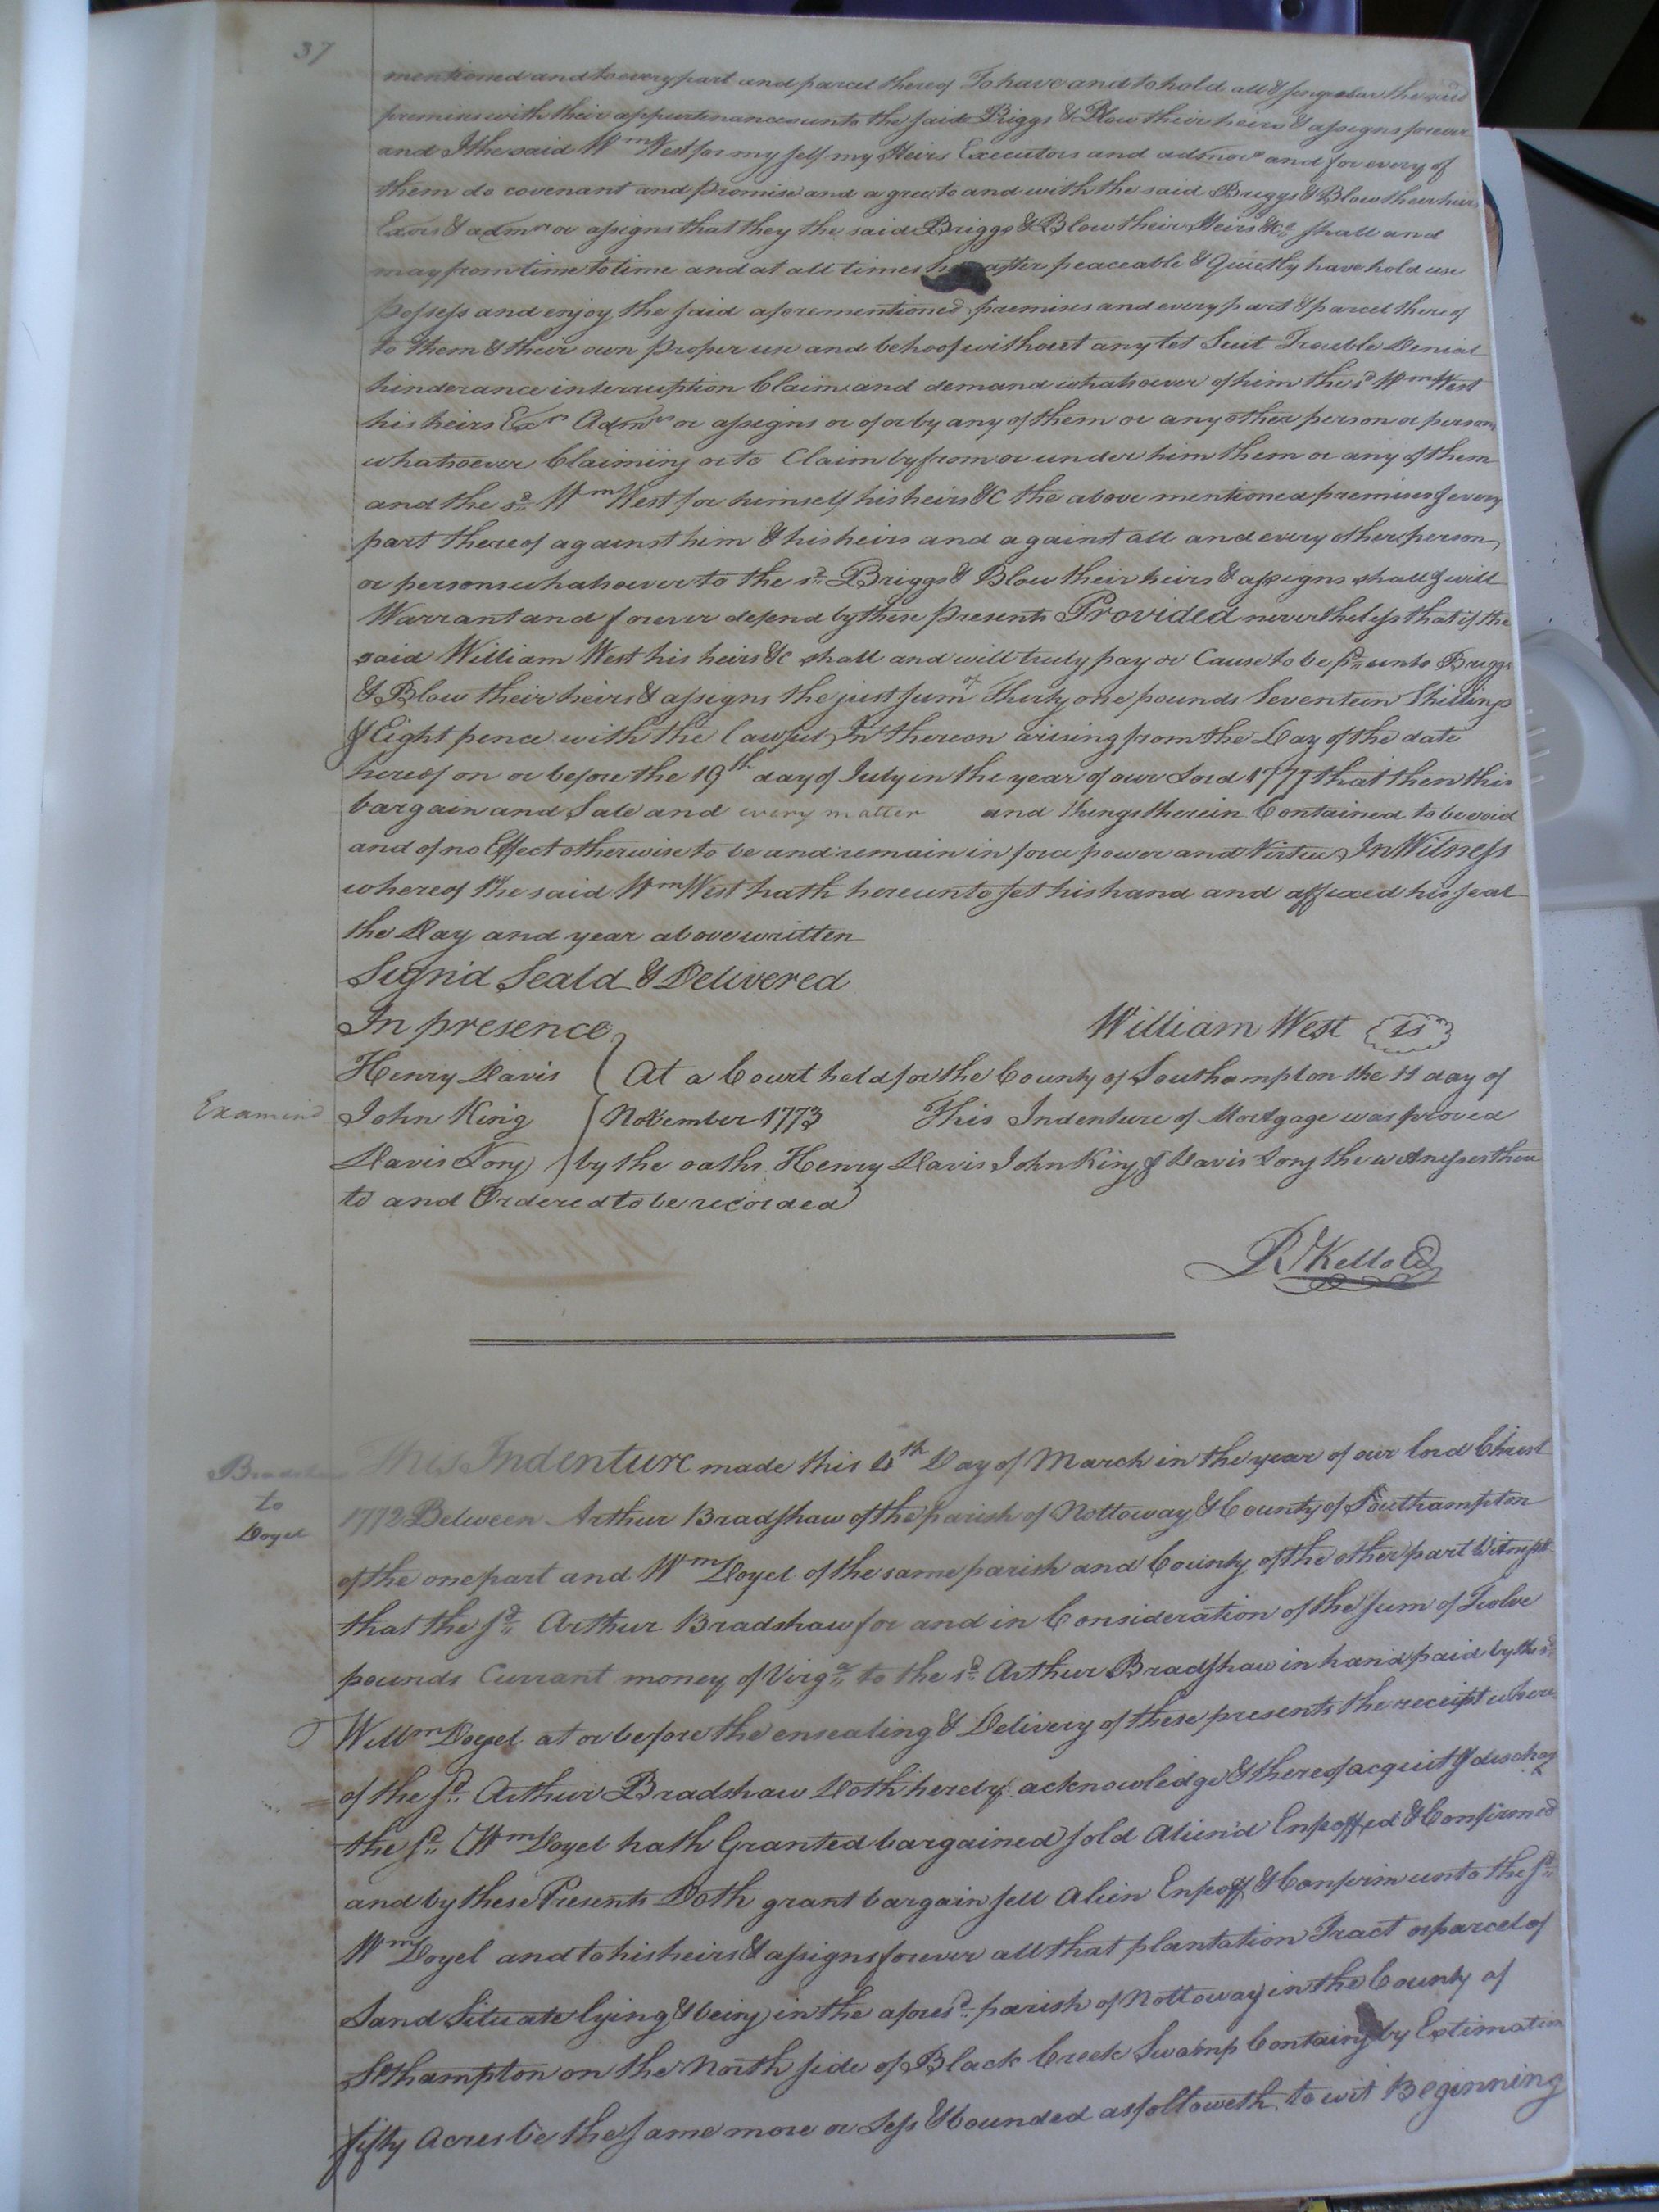 37
mentioned and to every part and parcel thereof To have and to hold all & singular the said
premises with their appurtenances unto the said Briggs & Blow their heirs & assigns forever
and I the said Wm West for my self my Heirs Executors and admors and for every of
them do covenant and promise and agree to and with the said Briggs & Blow their heirs
Exors & admrs or assigns that they the said Briggs & Blow their Heirs &c shall and
may from time to time and at all times after peaceable & Quietly have hold use
possess and enjoy the said aforementioned premises and every part & parcel thereof
to them & their own proper use and behoof without any let Suit Trouble Denial
hinderance interruption Claim and demand whatsoever of him the sd Wm West
his heirs Exrs Admrs or assigns or of or by any of them or any other person or persons
whatsoever Claiming or to Claim by from or under him them or any of them
and the sd Wm West for himself his heirs &c the above mentioned premises & every
part thereof against him & his heirs and against all and every other person
or persons whatsoever to the sd Briggs & Blow their heirs & assigns shall & will
Warrant and forever defend by these presents Provided nevertheless that if the
said William West his heirs &c shall and will truly pay or Cause to be pd unto Briggs
& Blow their heirs & assigns the just sum of Thirty one pounds Seventeen Shillings
& Eight pence with the lawful Int thereon arising from the Day of the date
hereof on or before the 19th day of July in the year of our Lord 1777 that then this
bargain and Sale and every matter and things therein Contained to be void
and of no Effect otherwise to be and remain in force power and Virtue In Witness
whereof the said Wm West hath hereunto set his hand and affixed his seal
the Day and year above written
Sign'd Seald & Delivered
In presence William West LS
Henry Davis At a Court held for the County of Southampton the 11 day of
Examin'd John King November 1773 This Indenture of Mortgage was proved
Davis Tory by the oaths Henry Davis John King & Davis Tory the witnesses there
to and Ordered to be recorded
R Kello Cl
This Indenture made this 4th Day of March in the year of our lord Christ
Bradshaw to Doyel
1772 Between Arthur Bradshaw of the parish of Nottoway & County of Southampton
of the one part and Wm Doyel of the same parish and County of the other part Witnesseth
that the sd Arthur Bradshaw for and in Consideration of the sum of Twolve
pounds Currant money of Virga to the sd Arthur Bradshaw in hand paid by the sd
Willm Doyel at or before the ensealing & Delivery of these presents the receipt where
of the sd Arthur Bradshaw Doth hereby acknowledge & thereof acquit & discharg
the sd Wm Doyel hath Granted bargained sold Alien'd Enfeoffed & Confirmed
and by these Presents Doth grant bargain sell Alien Enfeoff & Confirm unto the sd
Wm Doyel and to his heirs & assigns forever all that plantation Tract or parcel of
Land Situate lying & being in the aforesd parish of Nottoway in the County of
Sthampton on the North side of Black Creek Swamp Containg by Estimation
fifty Acres be the same more or Less & bounded as followeth to wit Beginning